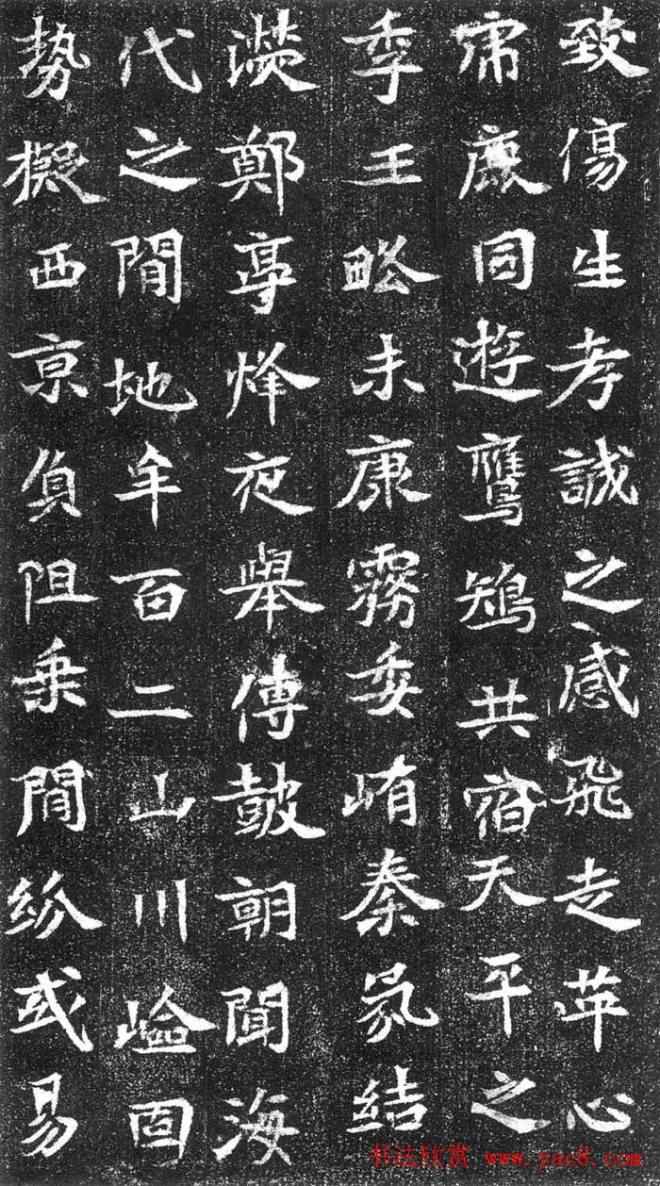 致傷生孝誠之感飛走革心
虎鹿同遊鷹鴙共宿天平之
季王略未康霧委崤秦氛結
滎鄭亭烽夜舉傳鼓朝聞海
代之間地牟百二山川嶮固
勢擬西京負阻乘間紛或易
书法欣赏 www.yac8.com